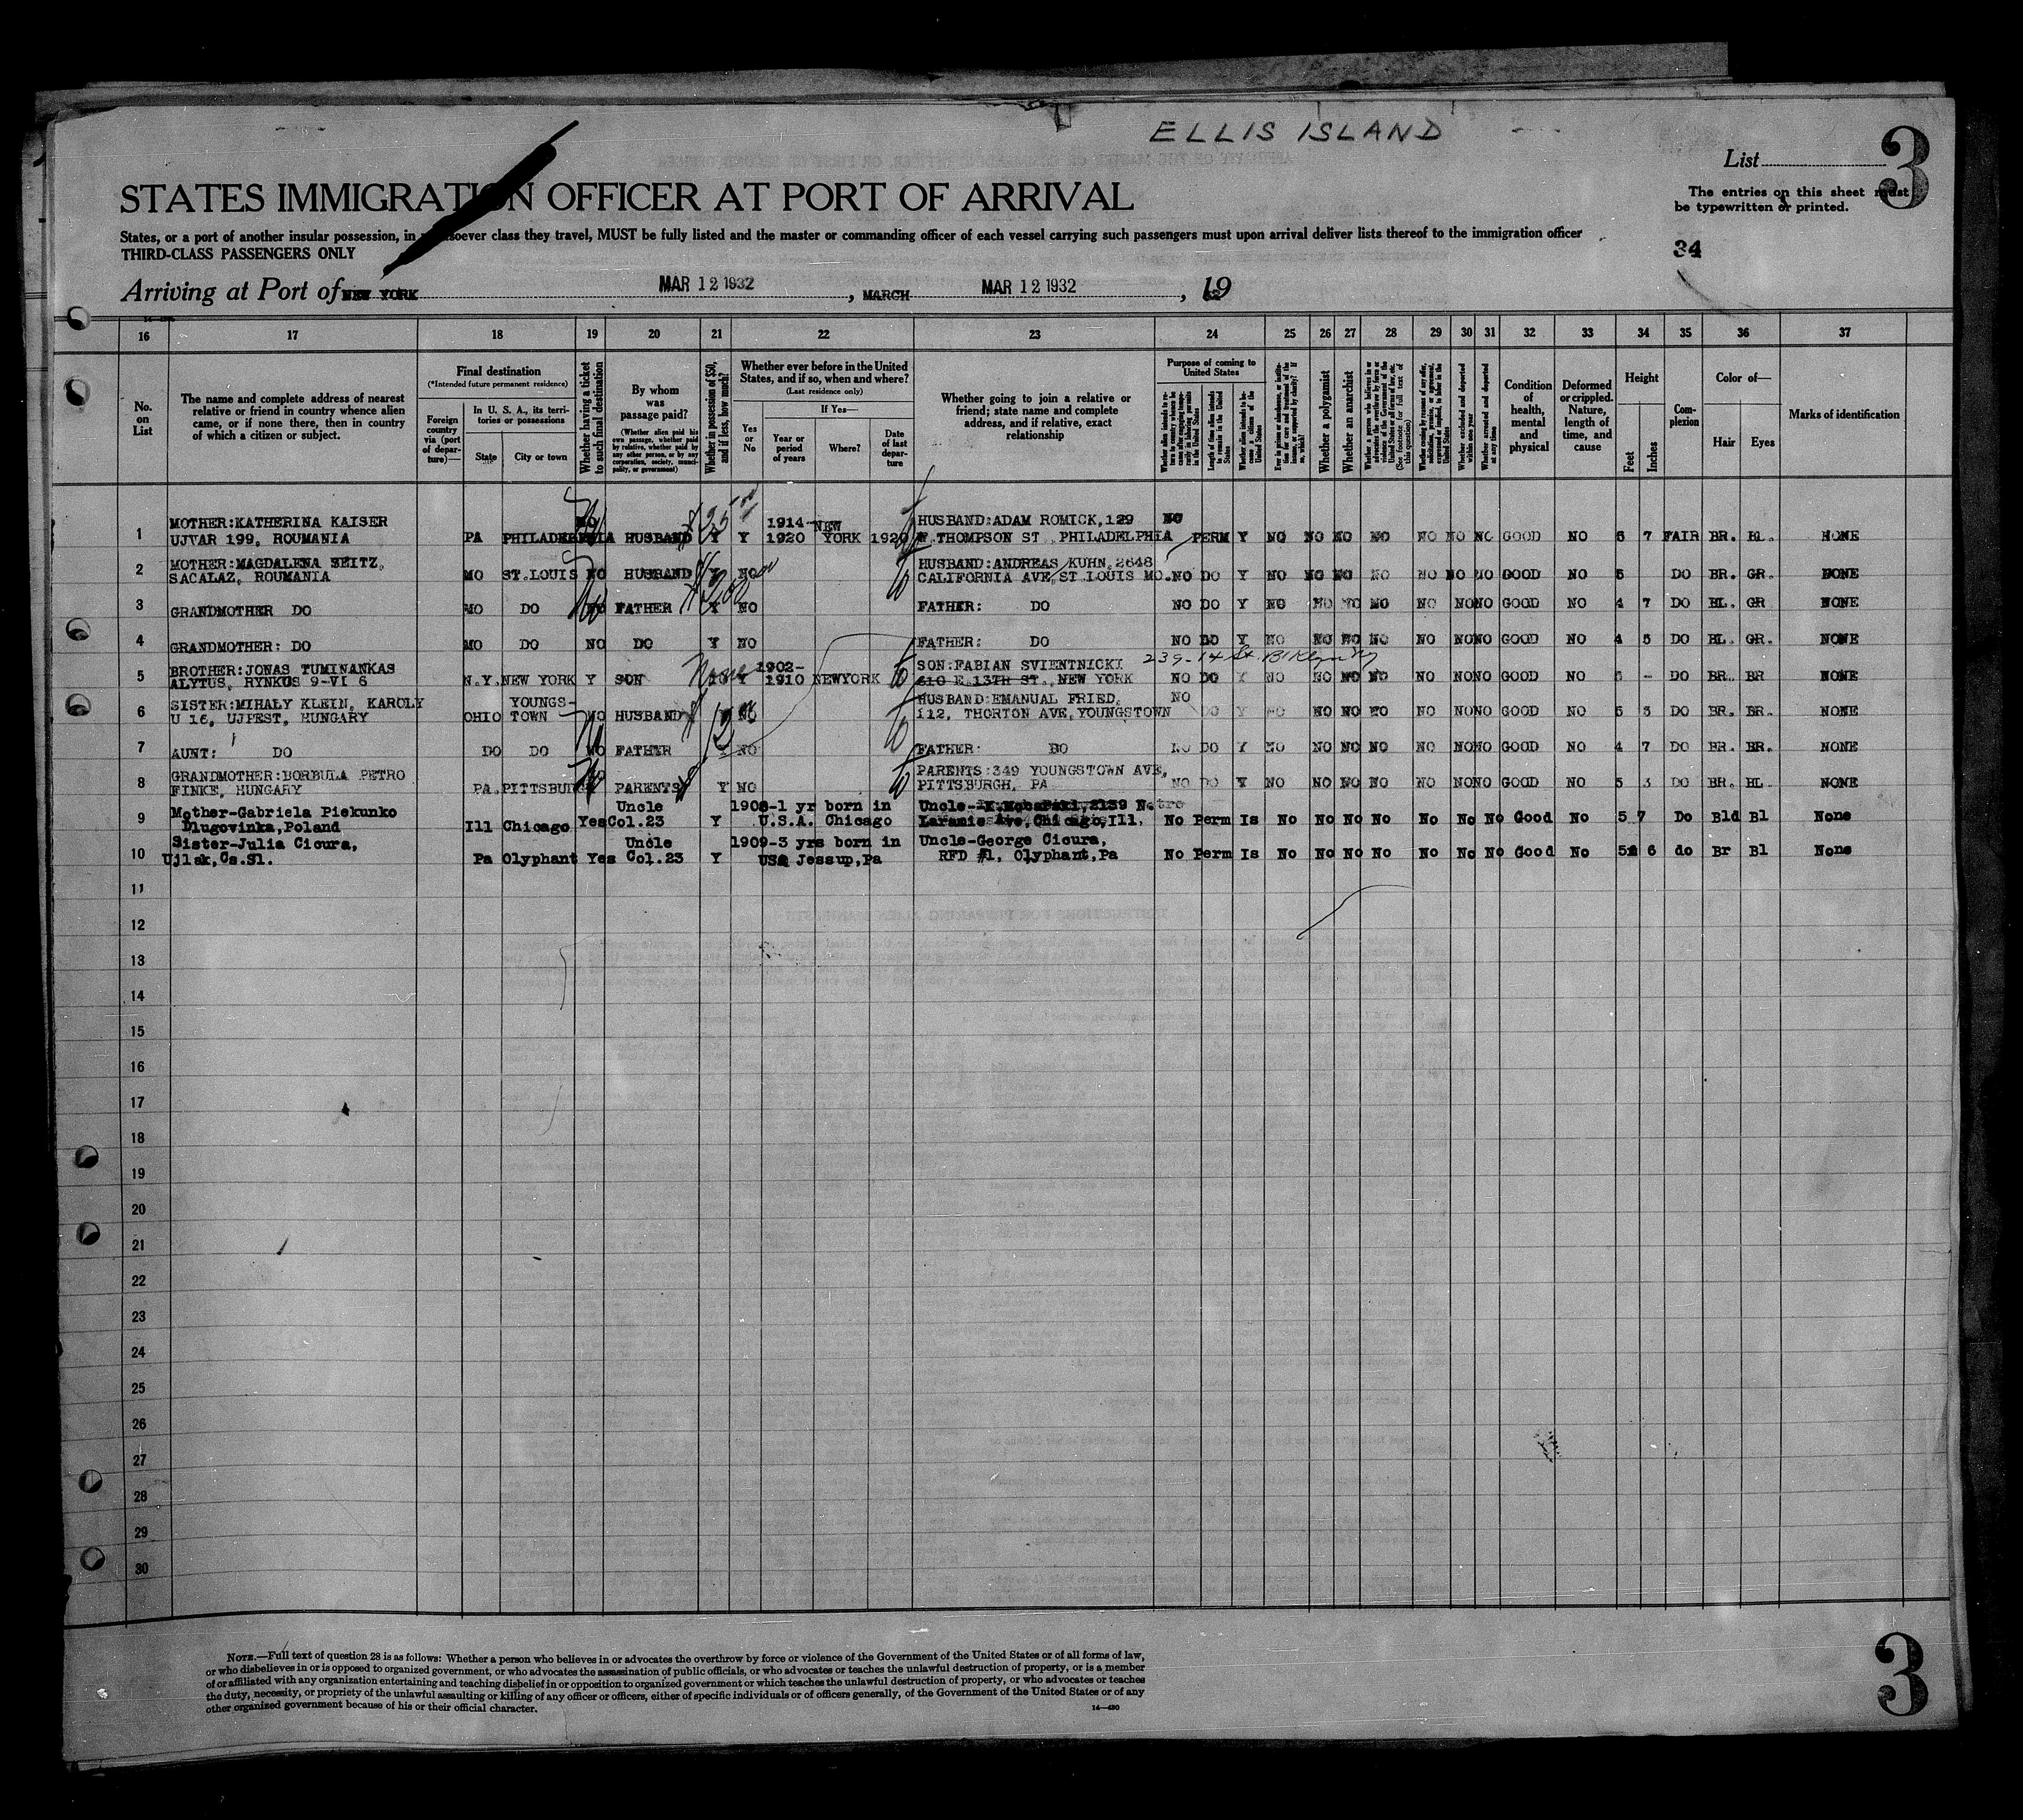 ELLIS ISLAND
List 3
The entries on this sheet must
be typewritten or printed.
STATES IMMIGRATION OFFICER AT PORT OF ARRIVAL
States, or a port of another insular possession, in whatsoever class they travel, MUST be fully listed and the master or commanding officer of each vessel carrying such passengers must upon arrival deliver lists thereof to the immigration officer
THIRD-CLASS PASSENGERS ONLY
34
Arriving at Port of NEW YORK MAR 12 1932, MARCH MAR 12 1932, 19
16 17 18 19 20 21 22 23 24 25 26 27 28 29 30 31 32 33 34 35 36 37
No. on List
The name and complete address of nearest relative or friend in country whence alien came, or if none there, then in country of which a citizen or subject.
Final destination
(*Intended future permanent residence)
Foreign country via (port of departure)—
In U. S. A., its territories or possessions
State City or town
Whether having a ticket to such final destination
By whom was passage paid?
(Whether alien paid his own passage, whether paid by relative, whether paid by any other person, or by any corporation, society, municipality, or government)
Whether in possession of $50, and if less, how much?
Whether ever before in the United States, and if so, when and where?
(Last residence only)
Yes or No
If Yes—
Year or period of years
Where?
Date of last departure
Whether going to join a relative or friend; state name and complete address, and if relative, exact relationship
Purpose of coming to United States
Length of time alien intends to remain in the United States
Whether alien intends to become a citizen of the United States
Whether a polygamist
Whether an anarchist
Whether excluded and deported within one year
Whether arrested and deported at any time
Condition of health, mental and physical
Deformed or crippled. Nature, length of time, and cause
Height
Feet Inches
Complexion
Color of—
Hair Eyes
Marks of identification
MOTHER:KATHERINA KAISER 1914- NEW HUSBAND:ADAM ROMICK,129 NO
1 UJVAR 199, ROUMANIA PA PHILADELPHIA HUSBAND Y Y 1920 YORK 1920 W.THOMPSON ST PHILADELPHIA PERM Y NO NO NO NO NO NO NO GOOD NO 5 7 FAIR BR. BL. NONE
MOTHER:MAGDALENA SEITZ, HUSBAND:ANDREAS KUHN,2648
2 SACALAZ, ROUMANIA MO ST.LOUIS NO HUSBAND Y NO CALIFORNIA AVE,ST LOUIS MO. NO DO Y NO NO NO NO NO NO NO GOOD NO 5 DO BR. GR. NONE
3 GRANDMOTHER DO MO DO NO FATHER Y NO FATHER: DO NO DO Y NO NO NO NO NO NO NO GOOD NO 4 7 DO BL. GR NONE
4 GRANDMOTHER: DO MO DO NO DO Y NO FATHER: DO NO DO Y NO NO NO NO NO NO NO GOOD NO 4 5 DO BL. GR. NONE
BROTHER:JONAS TUMINANKAS None 1902- SON:FABIAN SVIENTNICKI 239-14 St. Bklyn Ny
5 ALYTUS, RYNKUS 9-VI 6 N.Y. NEW YORK Y SON Y 1910 NEWYORK 610 E.13TH ST., NEW YORK NO DO Y NO NO NO NO NO NO NO GOOD NO 5 - DO BR. BR NONE
SISTER:MIHALY KLEIN, KAROLY YOUNGS- HUSBAND:EMANUAL FRIED, NO
6 U 16, UJPEST, HUNGARY OHIO TOWN NO HUSBAND NO 112, THORTON AVE,YOUNGSTOWN DO Y NO NO NO NO NO NO NO GOOD NO 5 3 DO BR. BR. NONE
7 AUNT: DO DO DO NO FATHER NO FATHER: DO NO DO Y NO NO NO NO NO NO NO GOOD NO 4 7 DO BR. BR. NONE
GRANDMOTHER:BORBULA PETRO PARENTS:349 YOUNGSTOWN AVE,
8 FINKE, HUNGARY PA. PITTSBURG PARENTS Y NO PITTSBURGH, PA NO DO Y NO NO NO NO NO NO NO GOOD NO 5 3 DO BR. BL. NONE
Mother-Gabriela Piekunko Uncle 1908-1 yr born in Uncle- 2139 N
9 Dlugovinka,Poland Ill Chicago Yes Col.23 Y U.S.A. Chicago Laramie Ave,Chicago,Ill. No Perm Is No No No No No No No Good No 5 7 Do Bld Bl None
Sister-Julia Cicura, Uncle 1909-3 yrs born in Uncle-George Cicura,
10 Ujlak,Cs.Sl. Pa Olyphant Yes Col.23 Y USA Jessup,Pa RFD #1, Olyphant,Pa No Perm Is No No No No No No No Good No 5 6 do Br Bl None
11
12
13
14
15
16
17
18
19
20
21
22
23
24
25
26
27
28
29
30
NOTE.—Full text of question 28 is as follows: Whether a person who believes in or advocates the overthrow by force or violence of the Government of the United States or of all forms of law,
or who disbelieves in or is opposed to organized government, or who advocates the assassination of public officials, or who advocates or teaches the unlawful destruction of property, or is a member
of or affiliated with any organization entertaining and teaching disbelief in or opposition to organized government or which teaches the unlawful destruction of property, or who advocates or teaches
the duty, necessity, or propriety of the unlawful assaulting or killing of any officer or officers, either of specific individuals or of officers generally, of the Government of the United States or of any
other organized government because of his or their official character.
14—480
3